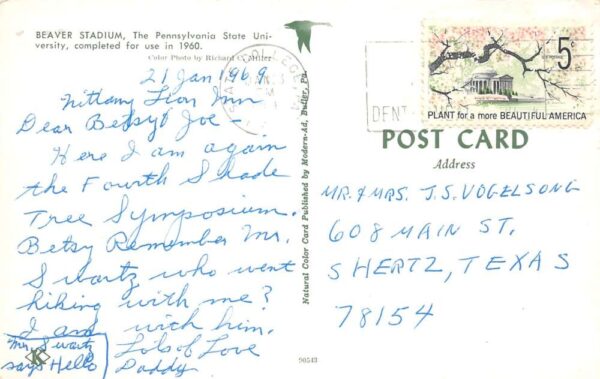 BEAVER STADIUM, The Pennsylvania State Uni-
versity, completed for use in 1960.
Color Photo by Richard C. Miller
21 Jan 1969
Nittany Lion Inn
Dear Betsy & Joe -
Here I am again
the Fourth Shade
Tree Symposium.
Betsy Remember Mr.
Swartz who went
hiking with me?
I am with him.
Lots of Love
Daddy
Mr. Swartz
says Hello
K
Natural Color Card Published by Modern-Ad, Butler, Pa.
90543
STATE COLLEGE
5¢
PLANT for a more BEAUTIFUL AMERICA
POST CARD
Address
MR. & MRS. J.S. VOGELSONG
608 MAIN ST.
SHERTZ, TEXAS
78154